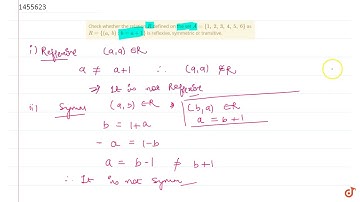 1455623
Check whether the relation R defined on the set A = {1, 2, 3, 4, 5, 6} as
R = {(a, b) : b = a + 1} is reflexive, symmetric or transitive.
i) Reflexive (a,a) ∈R
a ≠ a+1 ∴ (a,a) ∉R
⇒ It is not Reflexive
ii) Symm (a,b) ∈R ⇒ (b,a) ∈R
b = 1+a a = b+1
-a = 1-b
a = b-1 ≠ b+1
∴ It is not symm